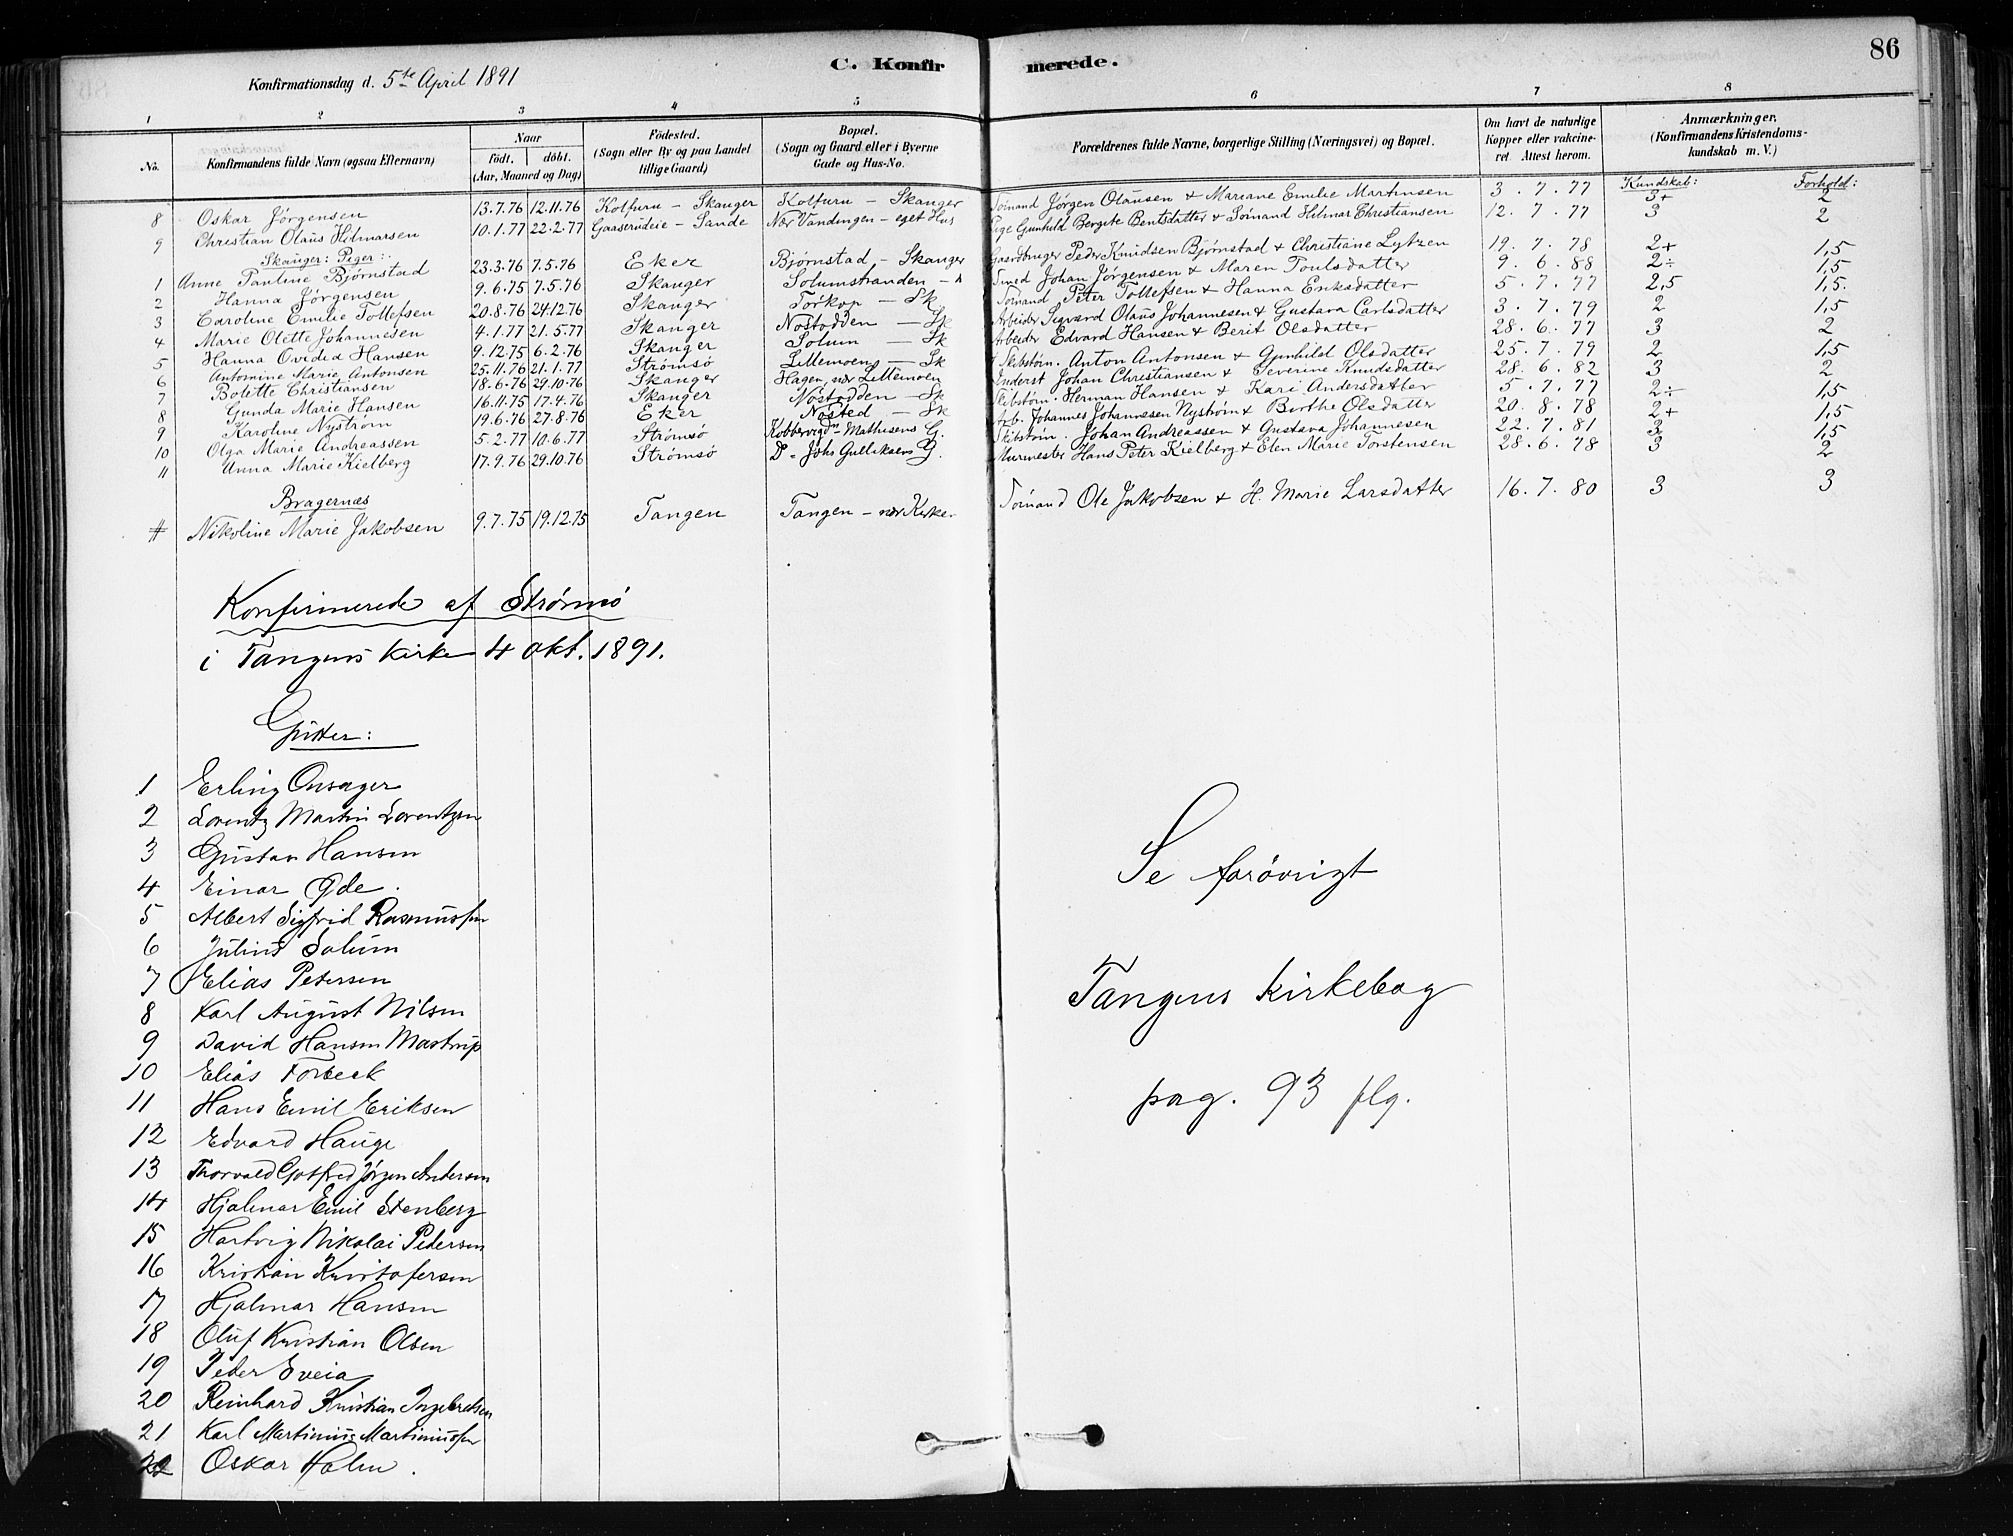 86
C. Konfirmerede.
Konfirmationsdag d. 5te April 1891
1 2 3 4 5 6 7 8
No. Konfirmandens fulde Navn (ogsaa Efternavn) Naar født. døbt. (Aar, Maaned og Dag) Fødested. (Sogn eller By og paa Landet tillige Gaard) Bopæl. (Sogn og Gaard eller i Byerne Gade og Hus-No. Forældrenes fulde Navne, borgerlige Stilling (Næringsvei) og Bopæl. Om havt de naturlige Kopper eller vakcineret. Attest herom. Anmærkninger. (Konfirmandens Kristendomskundskab m. V.)
Kundskab: Forhold:
8 Oskar Jörgensen 13.7.76 12.11.76 Kolfuru - Skanger Kolfuru - Skanger Sömand Jörgen Olausen & Mariane Emilie Martinsen 3.7.77 3+ 2
9 Christian Olaus Hilmarsen 10.1.77 22.2.77 Gaaserudeie - Sande Nær Vandingen - eget Hus Pige Gunhild Bergite Bentsdatter & Sömand Hilmar Christiansen 12.7.77 3 2
Skanger: Piger:
1 Anne Pautine Bjørnstad 23.3.76 7.5.76 Eker Bjørnstad - Skanger Gaardbruger Peder Knudsen Bjørnstad & Christiane Lytzen 19.7.78 2+ 1,5
2 Hanna Jörgensen 9.6.75 7.5.76 Skanger Solumstranden - " Johan Jörgensen & Maren Poulsdatter 9.6.88 2÷ 1,5
3 Caroline Emilie Tollefsen 20.8.76 24.12.76 Skanger Torkop - Sk Sömand Peter Tollefsen & Hanna Eriksdatter 5.7.77 2,5 1,5.
4 Marie Olette Johannesen 4.1.77 21.5.77 Skanger Nøstodden - Sk Arbeider Sigvard Olaus Johannesen & Gustava Carlsdatter 3.7.79 2 1,5
5 Hanna Ovidia Hansen 9.12.75 6.2.76 Skanger Solum - Sk Arbeider Edvard Hansen & Berit Olsdatter 28.6.77 3 2
6 Antomine Marie Antonsen 25.11.76 21.1.77 Strömsö Lillemoen - Sk Skibstøm. Anton Antonsen & Gunhild Olsdatter 25.7.79 2 1,5
7 Bolette Christiansen 18.6.76 29.10.76 Skanger Hagen, nær Lillemoen Inderst Johan Christiansen & Severine Knudsdatter 28.6.82 3 2
8 Gunda Marie Hansen 16.11.75 17.4.76 Skanger Nøstodden - Sk Skibstøm. Herman Hansen & Kari Andersdatter 5.7.77 2÷ 1,5
9 Karoline Nyström 19.6.76 27.8.76 Eker Nøsted - Sk Arb. Johannes Johannesen Nyström & Birthe Olsdatter 20.8.78 2+ 1,5
10 Olga Marie Andreassen 5.2.77 10.6.77 Strömsö Kobbervigdn - Mathisens G. Skibstøm. Johan Andreassen & Gustava Johannesen 22.7.81 3 1,5
11 Anna Marie Kielberg 17.9.76 29.10.76 Strömsö Do - Johs Gulliksens G. Murmester Hans Peter Kielberg & Elen Marie Torstensen 28.6.78 3 2
Bragernæs
# Nikoline Marie Jakobsen 9.7.75 19.12.75 Tangen Tangen - nær Kirken Sömand Ole Jakobsen & H. Marie Larsdatter 16.7.80 3 3
Konfirmerede af Strömsö
i Tangens Kirke 4 Okt. 1891.
Gutter:
1 Erling Onsager
2 Lorentz Martin Lorentzen
3 Gustav Hansen
4 Einar Øde.
5 Albert Sigfrid Rasmussen
6 Julius Solum
7 Elias Petersen
8 Karl August Nilsen
9 David Hansen Mastrup
10 Elias Forbeck
11 Hans Emil Eriksen
12 Edvard Hauge
13 Thorvald Gotfred Jörgen Andersen
14 Hjalmar Emil Stenberg
15 Hartvig Nikolai Pedersen
16 Kristian Kristofersen
17 Hjalmar Hansen
18 Oluf Kristian Olsen
19 Peder Sveia
20 Reinhard Kristian Ingebretsen
21 Karl Martinius Martiniussen
22 Oskar Holm.
Se forövrigt
Tangens Kirkebog
pag. 93 flg.